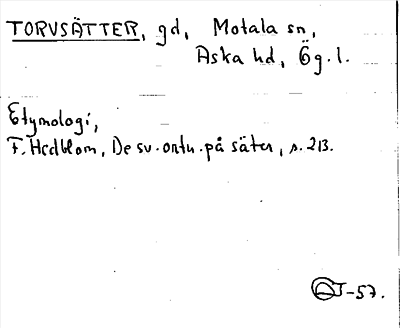 TORVSÄTTER, gd, Motala sn,
Aska hd, Ög.l.
Etymologi,
F. Hedblom, De sv. ortn. på säter, s. 213.
-57.